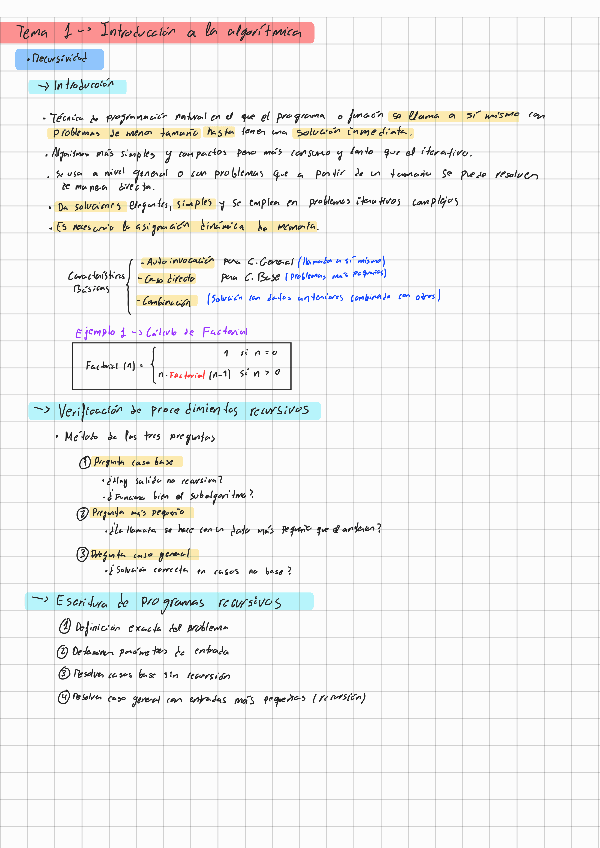 Tema 1 -> Introducción a la algorítmica
• Recursividad
-> Introducción
• Técnica de programación natural en el que el programa o función se llama a sí mismo con
problemas de menor tamaño hasta tener una solución inmediata.
• Algoritmos más simples y compactos pero más consumo y lento que el iterativo.
• Se usa a nivel general o con problemas que a partir de un tamaño se puede resolver
de manera directa.
• Da soluciones elegantes, simples y se emplea en problemas iterativos complejos
• Es necesario la asignación dinámica de memoria.
Características Básicas
- Autoinvocación para C. General (llamada a sí mismo)
- Caso directo para C. Base (Problemas más pequeños)
- Combinación (Solución con datos anteriores combinado con otros)
Ejemplo 1 -> Cálculo de Factorial
Factorial (n) =
1 si n = 0
n · Factorial (n-1) si n > 0
-> Verificación de procedimientos recursivos
• Método de las tres preguntas
1 Pregunta caso base
• ¿Hay salida no recursiva?
• ¿Funciona bien el subalgoritmo?
2 Pregunta más pequeño
• ¿La llamada se hace con un dato más pequeño que el anterior?
3 Pregunta caso general
• ¿Solución correcta en casos no base?
-> Escritura de programas recursivos
1 Definición exacta del problema
2 Determinar parámetros de entrada
3 Resolver casos base sin recursión
4 Resolver caso general con entradas más pequeñas (recursión)